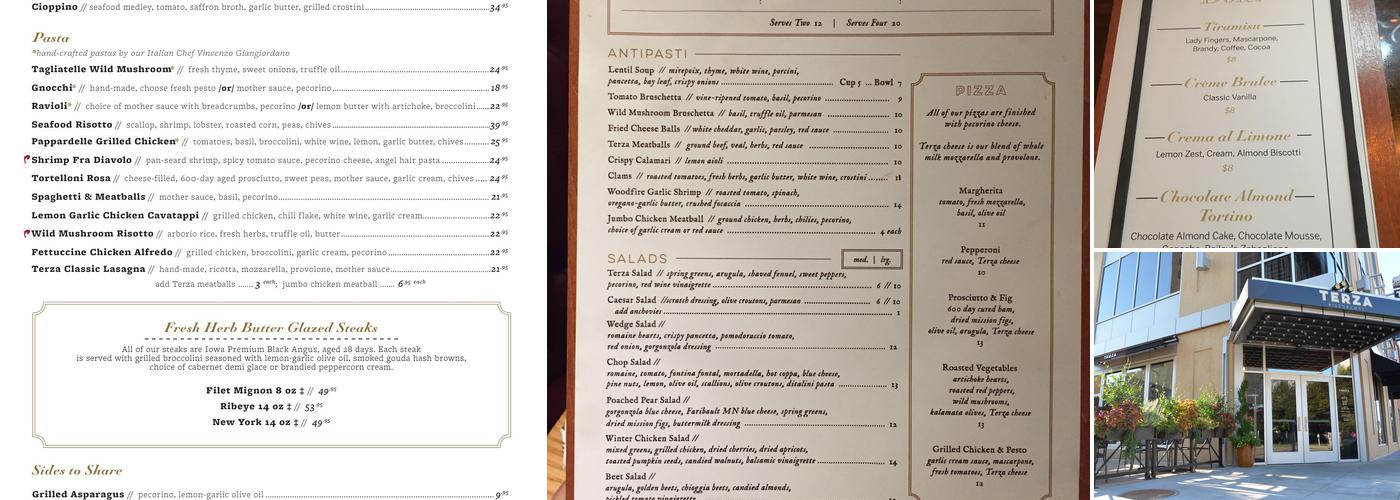 Cioppino // seafood medley, tomato, saffron broth, garlic butter, grilled crostini 34.95
Pasta
*hand-crafted pastas by our Italian Chef Vincenzo Giangiordano
Tagliatelle Wild Mushroom* // fresh thyme, sweet onions, truffle oil 24.95
Gnocchi* // hand-made, choose fresh pesto /or/ mother sauce, pecorino 18.95
Ravioli* // choice of mother sauce with breadcrumbs, pecorino /or/ lemon butter with artichoke, broccolini 22.95
Seafood Risotto // scallop, shrimp, lobster, roasted corn, peas, chives 39.95
Pappardelle Grilled Chicken* // tomatoes, basil, broccolini, white wine, lemon, garlic butter, chives 25.95
Shrimp Fra Diavolo // pan-seard shrimp, spicy tomato sauce, pecorino cheese, angel hair pasta 24.95
Tortelloni Rosa // cheese-filled, 600-day aged prosciutto, sweet peas, mother sauce, garlic cream, chives 24.95
Spaghetti & Meatballs // mother sauce, basil, pecorino 21.95
Lemon Garlic Chicken Cavatappi // grilled chicken, chili flake, white wine, garlic cream 22.95
Wild Mushroom Risotto // arborio rice, fresh herbs, truffle oil, butter 22.95
Fettuccine Chicken Alfredo // grilled chicken, broccolini, garlic cream, pecorino 22.95
Terza Classic Lasagna // hand-made, ricotta, mozzarella, provolone, mother sauce 21.95
add Terza meatballs ....... 3 each, jumbo chicken meatball ....... 6.95 each
Fresh Herb Butter Glazed Steaks
All of our steaks are Iowa Premium Black Angus, aged 28 days. Each steak
is served with grilled broccolini seasoned with lemon-garlic olive oil, smoked gouda hash browns,
choice of cabernet demi glace or brandied peppercorn cream.
Filet Mignon 8 oz ‡ // 49.95
Ribeye 14 oz ‡ // 53.95
New York 14 oz ‡ // 49.95
Sides to Share
Grilled Asparagus // pecorino, lemon-garlic olive oil 9.95
Serves Two 12 | Serves Four 20
ANTIPASTI
Lentil Soup // mirepoix, thyme, white wine, porcini,
pancetta, bay leaf, crispy onions Cup 5 ... Bowl 7
Tomato Bruschetta // vine-ripened tomato, basil, pecorino 9
Wild Mushroom Bruschetta // basil, truffle oil, parmesan 10
Fried Cheese Balls // white cheddar, garlic, parsley, red sauce 10
Terza Meatballs // ground beef, veal, herbs, red sauce 10
Crispy Calamari // lemon aioli 10
Clams // roasted tomatoes, fresh herbs, garlic butter, white wine, crostini 18
Woodfire Garlic Shrimp // roasted tomato, spinach,
oregano-garlic butter, crushed focaccia 14
Jumbo Chicken Meatball // ground chicken, herbs, chilies, pecorino,
choice of garlic cream or red sauce 4 each
SALADS
med. | lrg.
Terza Salad // spring greens, arugula, shaved fennel, sweet peppers,
pecorino, red wine vinaigrette 6 // 10
Caesar Salad //scratch dressing, olive croutons, parmesan 6 // 10
add anchovies 1
Wedge Salad //
romaine hearts, crispy pancetta, pomodoraccio tomato,
red onion, gorgonzola dressing 12
Chop Salad //
romaine, tomato, fontina fontal, mortadella, hot coppa, blue cheese,
pine nuts, lemon, olive oil, scallions, olive croutons, ditalini pasta 13
Poached Pear Salad //
gorgonzola blue cheese, Faribault MN blue cheese, spring greens,
dried mission figs, buttermilk dressing 12
Winter Chicken Salad //
mixed greens, grilled chicken, dried cherries, dried apricots,
toasted pumpkin seeds, candied walnuts, balsamic vinaigrette 14
Beet Salad //
arugula, golden beets, chioggia beets, candied almonds,
pickled tomato vinaigrette
PIZZA
All of our pizzas are finished
with pecorino cheese.
Terza cheese is our blend of whole
milk mozzarella and provolone.
Margherita
tomato, fresh mozzarella,
basil, olive oil
11
Pepperoni
red sauce, Terza cheese
10
Prosciutto & Fig
600 day cured ham,
dried mission figs,
olive oil, arugula, Terza cheese
13
Roasted Vegetables
artichoke hearts,
roasted red peppers,
wild mushrooms,
kalamata olives, Terza cheese
13
Grilled Chicken & Pesto
garlic cream sauce, mascarpone,
fresh tomatoes, Terza cheese
12
Tiramisu
Lady Fingers, Mascarpone,
Brandy, Coffee, Cocoa
$8
Crème Brulee
Classic Vanilla
$8
Crema al Limone
Lemon Zest, Cream, Almond Biscotti
$8
Chocolate Almond
Tortino
Chocolate Almond Cake, Chocolate Mousse,
TERZA